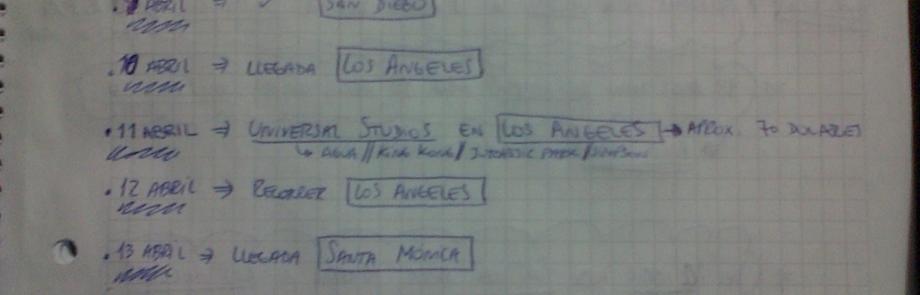 ABRIL → SAN DIEGO
• 10 ABRIL ⇒ LLEGADA LOS ANGELES
• 11 ABRIL ⇒ UNIVERSAL STUDIOS EN LOS ANGELES → APROX. 70 DOLARES
↳ AGUA // KING KONG / JURASSIC PARK / SIMPSON
• 12 ABRIL ⇒ RECORRER LOS ANGELES
• 13 ABRIL ⇒ LLEGADA SANTA MÓNICA